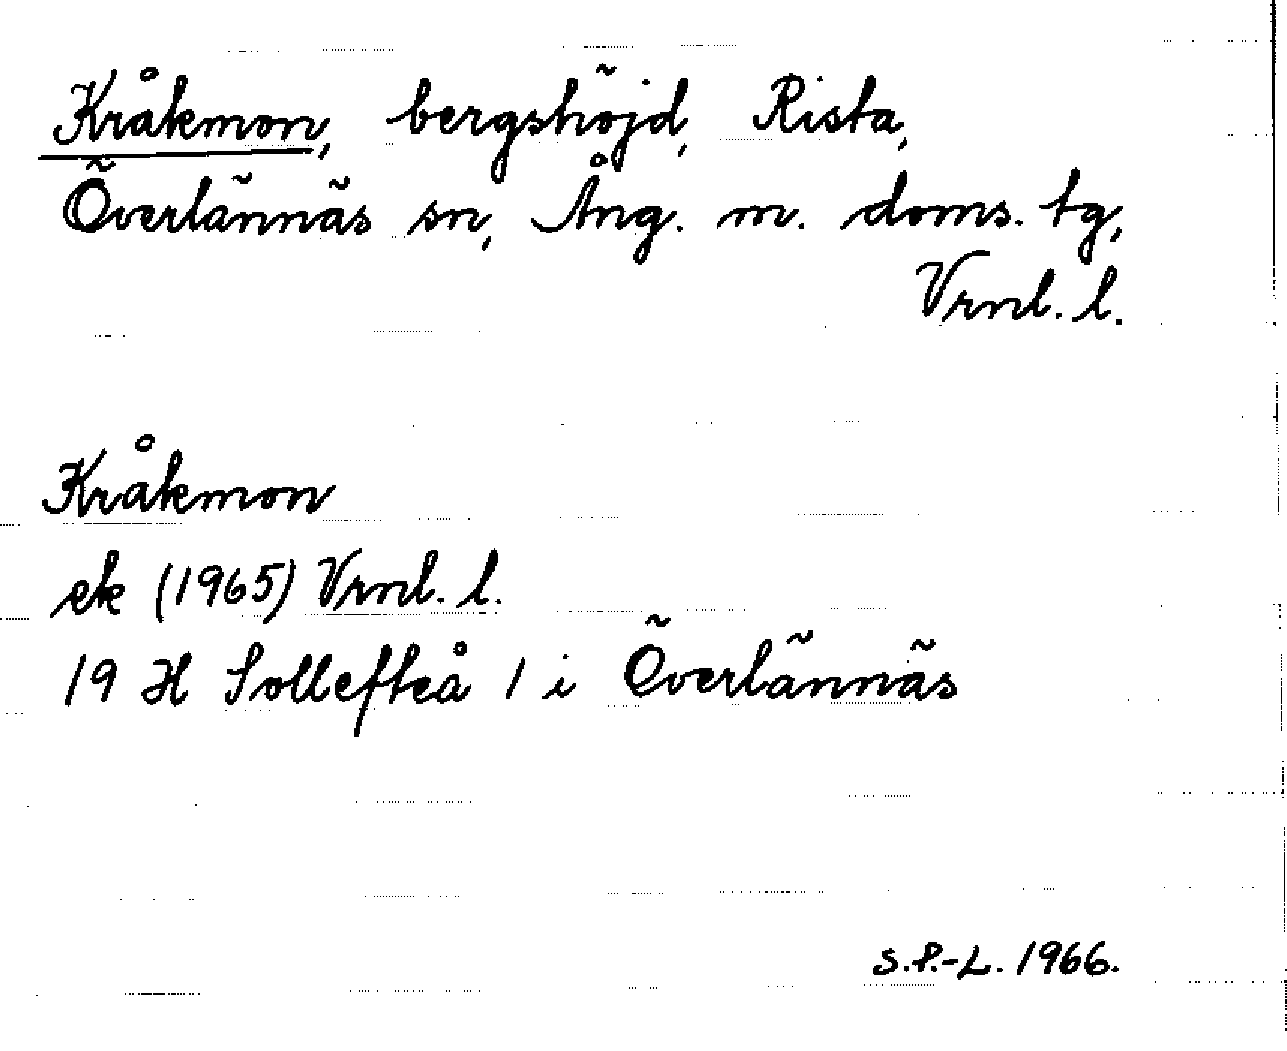 Kråkmon, bergshöjd, Rista,
Överlännäs sn, Ång. m. doms. tg,
Vrnl. l.
Kråkmon
ek (1965) Vrnl. l.
19 H Sollefteå 1 i Överlännäs
S.P.-L. 1966.